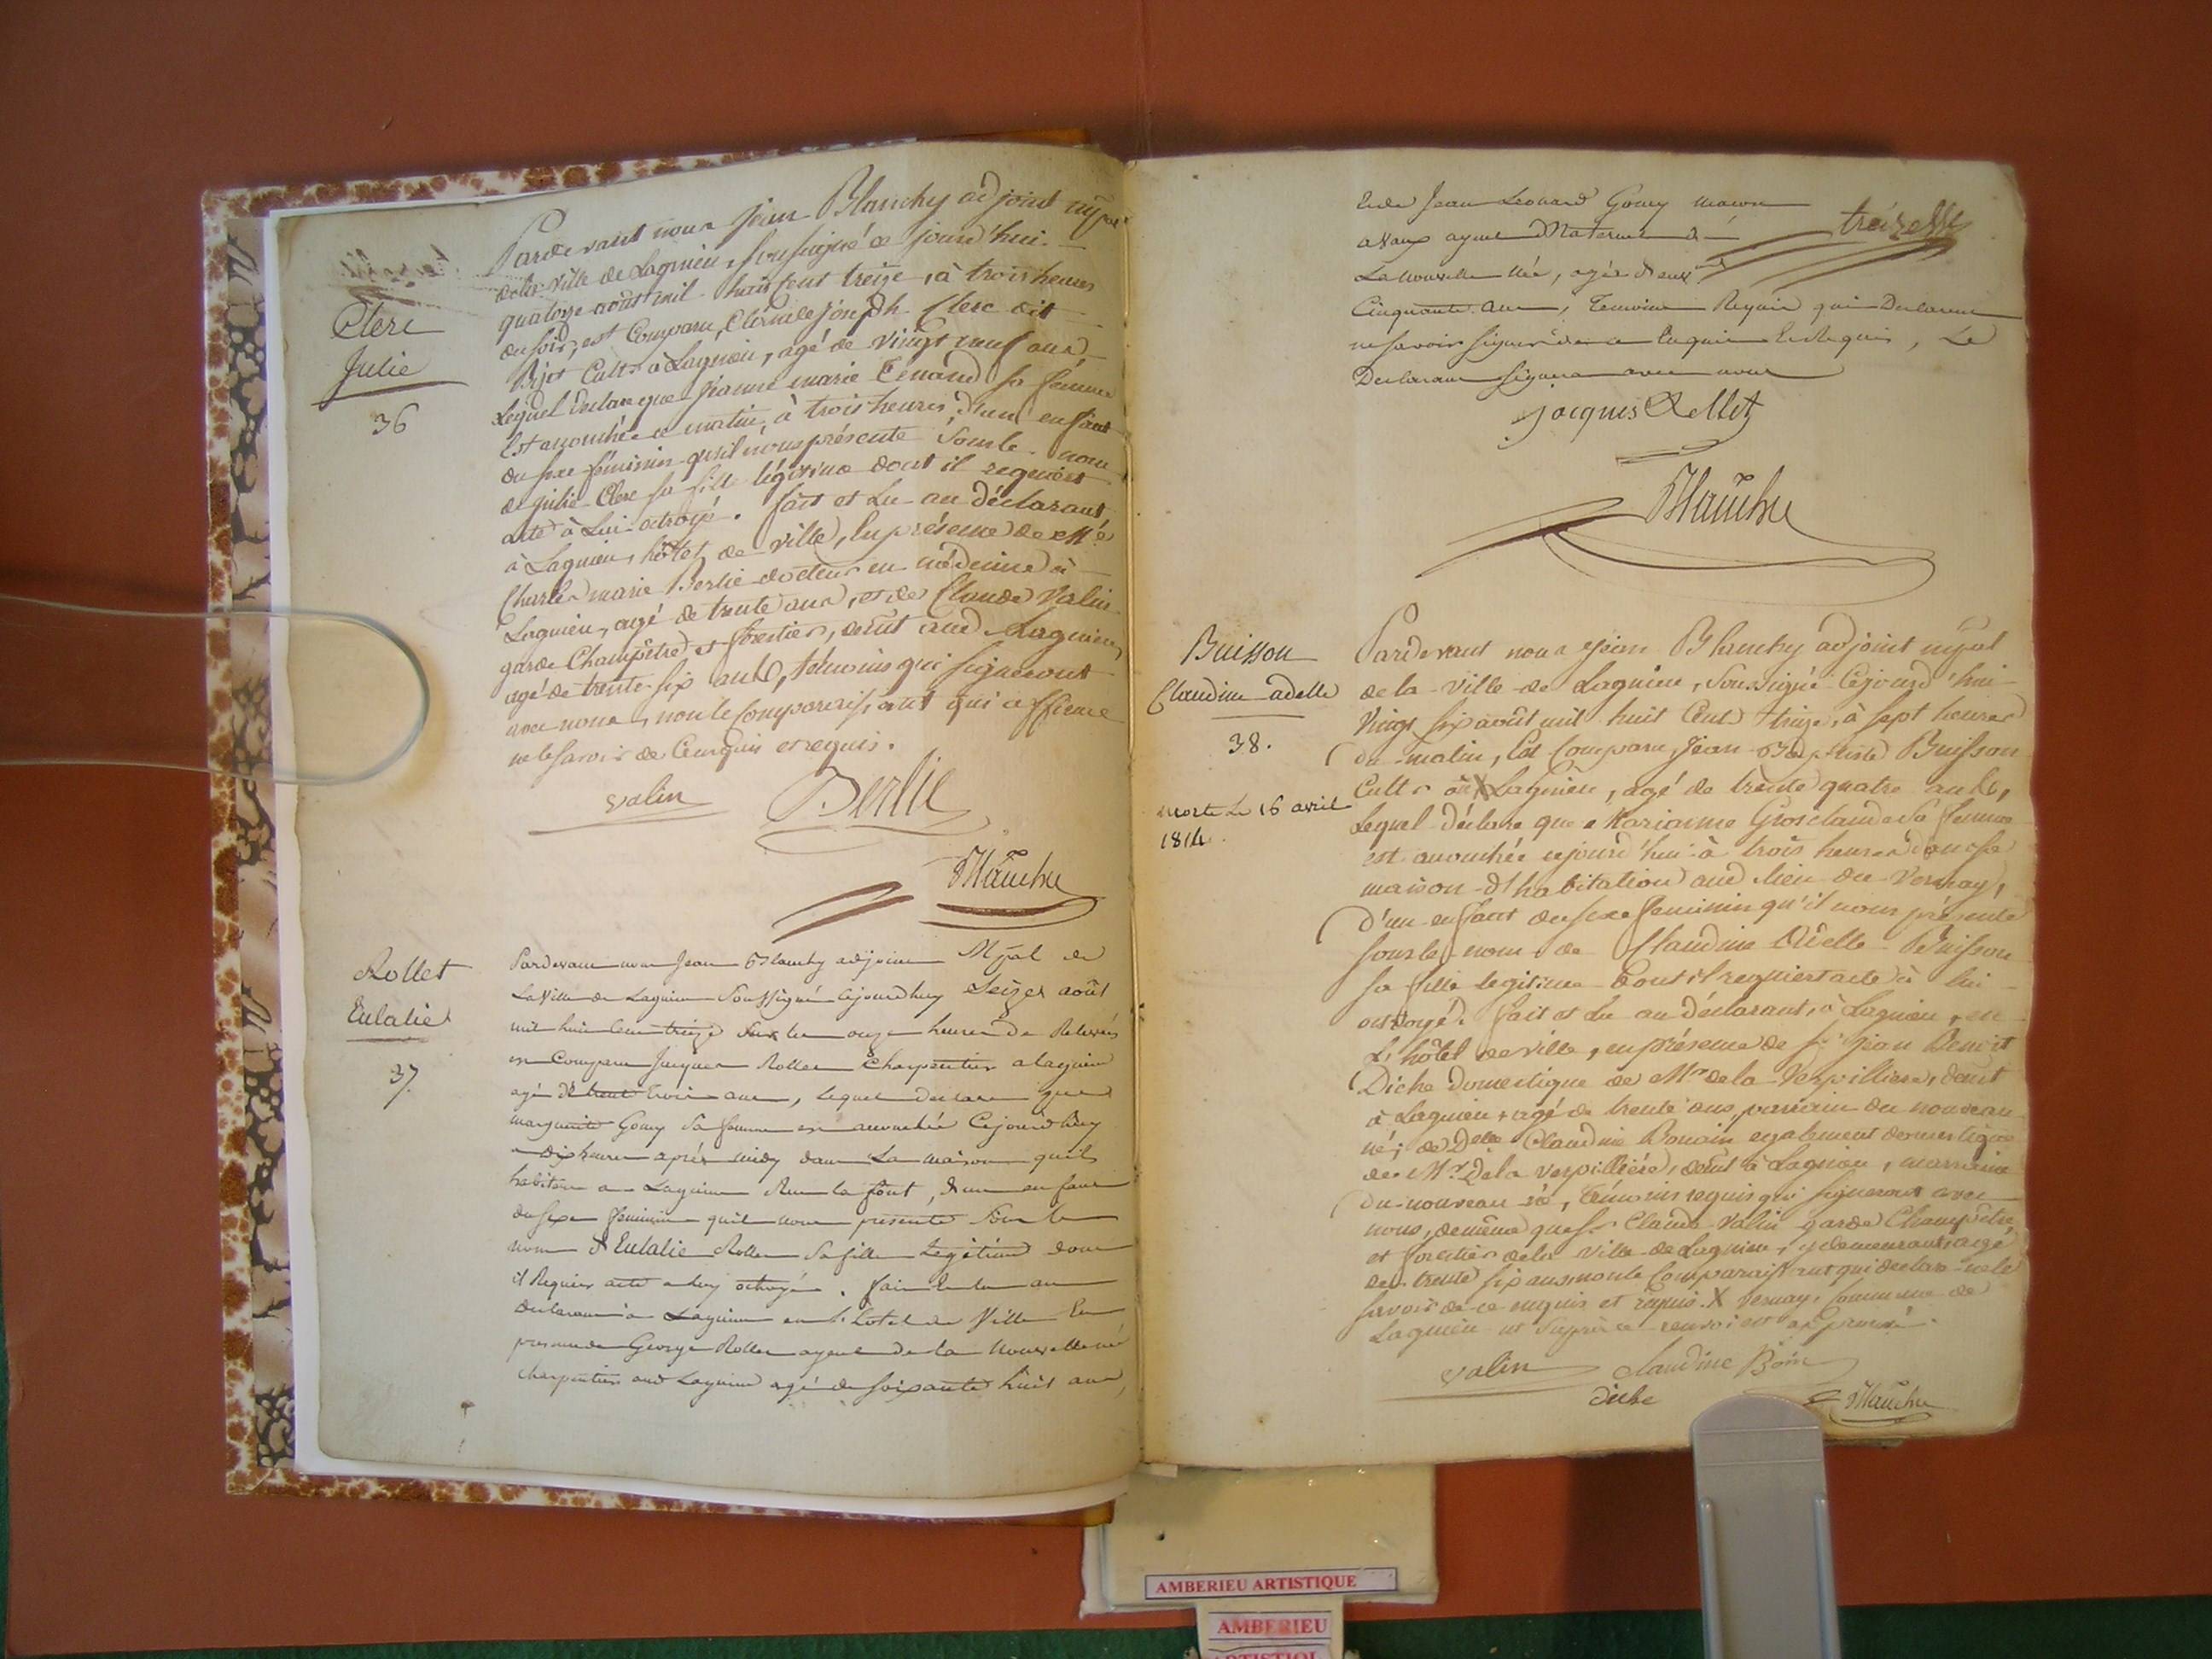 Clerc
Julie
36
Pardevant nous Jean Blanchy adjoint mpal
de la ville de Lagnieu, soussigné ce jourd'hui
quatorze août mil huit cent treize, à trois heures
du soir, est comparu, Claude Joseph Clerc dit
Cultr à Lagnieu, agé de vingt neuf ans,
Lequel déclare que Jeanne marie Tenand sa femme
Est accouchée ce matin, à trois heures, d'un enfant
du sexe féminin qu'il nous présente sous le nom
de Julie Clerc sa fille légitime dont il requiert
acte à Lui octroyé. fait et Lu au déclarant
à Lagnieu, hôtel de ville, En présence de Mr
Charles marie Berlie docteur en médecine à
Lagnieu, agé de trente ans, et de Claude Valin
garde Champêtre et forestier, demt aud Lagnieu,
agé de trente six ans, témoins qui signeront
avec nous, non le comparaissant qui affirme
ne le savoir de ce enquis et requis.
valin Berlie
Blanchy
Rollet
Eulalie
37.
Pardevant nous Jean Blanchy adjoint Mpal de
La Ville de Lagnieu Soussigné cejourdhuy Seize août
mil huit Cent treize Sur les onze heures de Relevés
est Comparu Jacques Rollet Charpentier a lagnieu
agé de trente trois ans, lequel declare que
marguerite Gouy Sa femme est accouchée Cejourdhuy
a dix heures après midy dans La maison quils
habitent a Lagnieu Rue la font, d'un enfant
du sexe feminin quil nous presente Sous le
nom d'Eulalie Rollet Sa fille Legitime dont
il Requier acte a luy octroyé. fait et lu au
declarant à Lagnieu en l'hotel de Ville En
presence de George Rollet ayeul de la Nouvelle né
charpentier aud Lagnieu agé de soixante huit ans,
treizes
Et de Jean Leonard Gouy macon
a Vaux ayeul Maternel de
La nouvelle née, agée de
Cinquante ans, Temoins Requis qui Declarent
ne savoir signer de ce Enquis Et Requis, Le
Declarant signera avec nous
Jacques Rollet
Blanchy
Buisson
Claudine adelle
38.
morte le 16 avril
1814.
Pardevant nous Jean Blanchy adjoint mpal
de la ville de Lagnieu, Soussigné Cejourd'hui
Vingt six août mil huit Cent treize, à sept heures
du matin, Est Comparu, Jean Baptiste Buisson
Cultr au X Lagnieu, agé de trente quatre ans,
Lequel déclare que Marianne Grosclaude sa femme
est accouchée cejourd'hui à trois heures dans sa
maison d'habitation aud lieu du Vernay,
D'un enfant du sexe feminin qu'il nous présente
sous le nom de Claudine Adelle Buisson
sa fille legitime dont il requiert acte à lui
octroyé. fait et Lu au déclarant, à Lagnieu, en
L'hôtel de ville, en présence de Sr jean Benoit
Diche Domestique de Mr de la Verpilliere, demt
à Lagnieu, agé de trente ans, parrain du nouveau
né; de Delle Claudine Bonain egalement domestique
de Mr Dela verpillière, demt à Lagnieu, marraine
du nouveau né, témoins requis qui signeront avec
nous, de même que sr Claude Valin garde Champêtre
et forestier dela ville de Lagnieu, y demeurant, agé
de trente six ans non le Comparaissant qui declare ne le
savoir de ce enquis et requis. X Vernay, Commune de
Lagnieu
valin Claudine Boin
diche Blanchy
AMBERIEU ARTISTIQUE
AMBERIEU